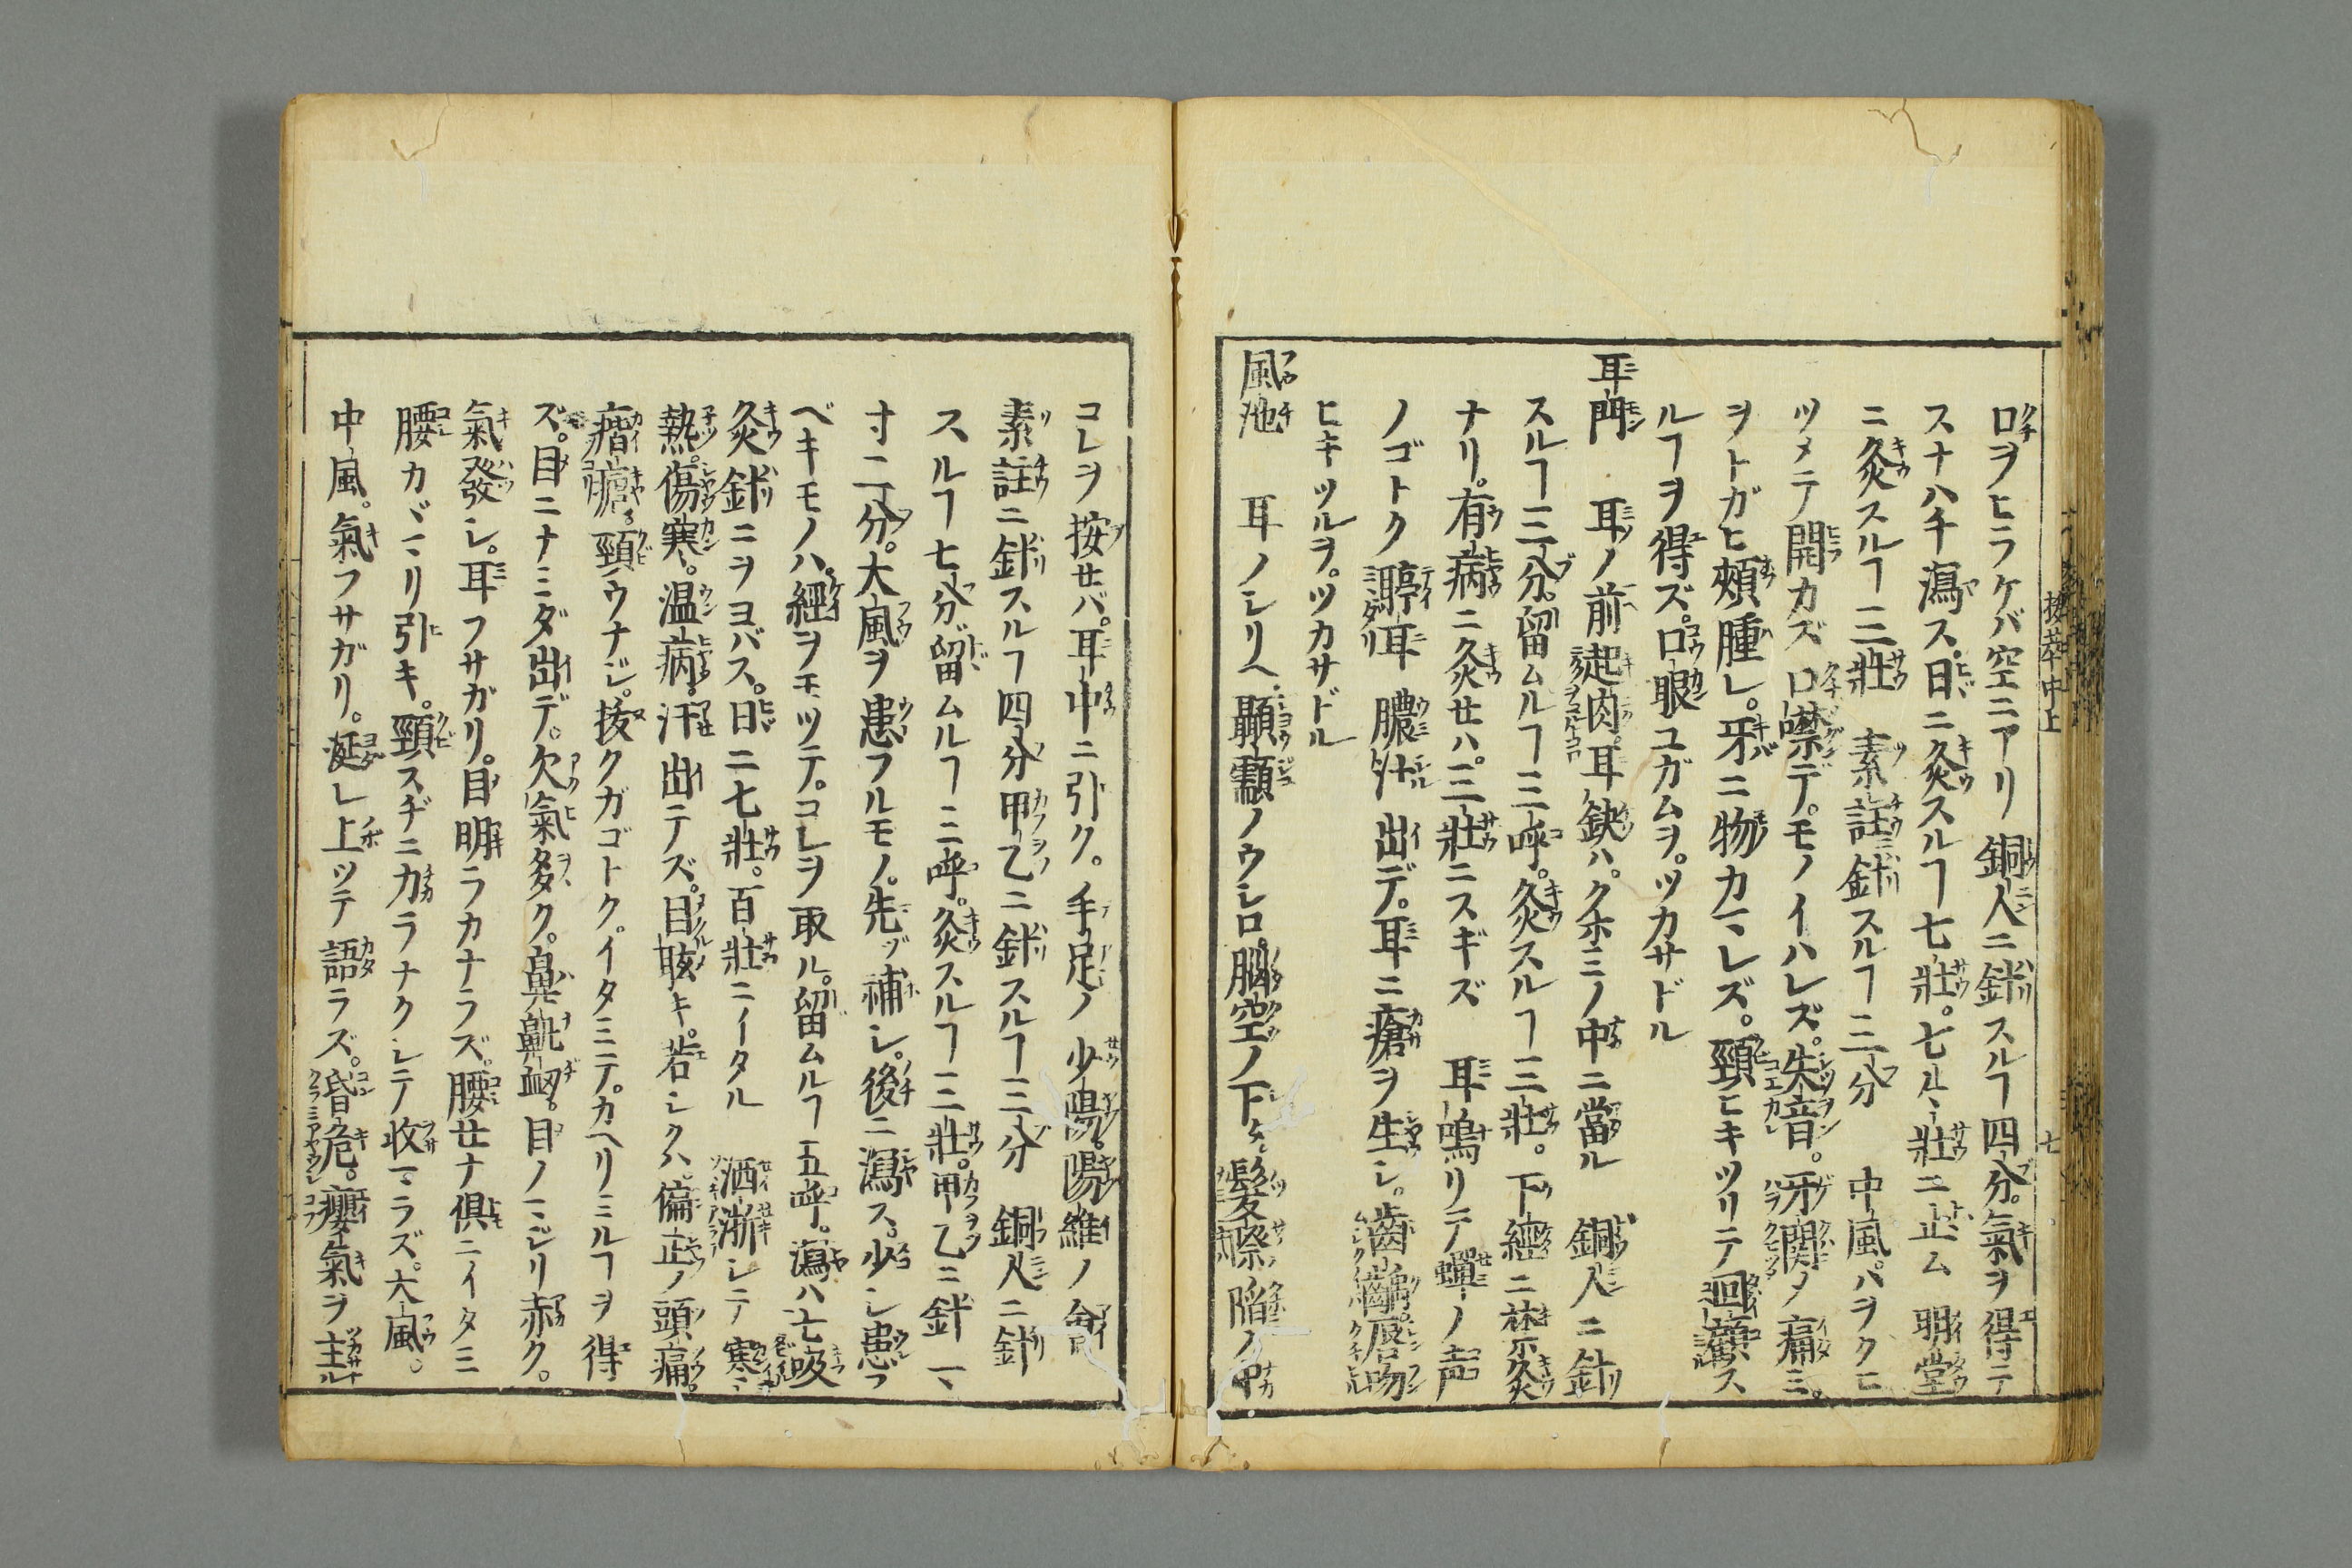 口ヲヒラケバ空ニアリ 銅人ニ鈄スルヿ四分。氣ヲ得テ
スナハチ瀉ス。日ニ灸スルヿ七壯。七々壯ニ止ム 明堂
ニ灸スルヿ三壯 素註針スルヿ三分 中風。ハヲクヒ
ツメテ開カズ 口噤デ。モノイハレズ。失音。牙関ノ痛ミ。
ヲトガヒ頰腫レ。牙ニ物カマレズ。頸ヒキツリテ回顧ス
ルヿヲ得ズ。口眼ユガムヲ。ツカサドル
耳門 耳ノ前起肉。耳缺ハ。クホミノ中ニ當ル 銅人ニ針
スルヿ三分。留ムルヿ三呼。灸スルヿ三壯。下經ニ禁灸
ナリ。有病ニ灸セハ。三壯ニスギズ 耳鳴リテ蟬ノ声
ノゴトク聤耳 膿汁出デ。耳ニ瘡ヲ生シ。齒齲。唇吻
ヒキツルヲ。ツカサドル
風池 耳ノシリヘ。顳顬ノウシロ。脳空ノ下タ。髮際陷ノ中
拔萃中上 七
コレヲ按セバ。耳中ニ引ク。手足ノ少陽。陽維ノ會
素註ニ針スルヿ四分 甲乙ニ針スルヿ三分 銅人ニ針
スルヿ七分。留ムルヿ三呼。灸スルヿ三壯。甲乙ニ針一
寸二分。大風ヲ患フルモノ。先ヅ補シ。後ニ瀉ス。少シ患フ
ベキモノハ。經ヲモツテ。コレヲ取ル。留ムルヿ五呼。瀉ハ七吸
灸針ニヲヨバス。日ニ七壯。百壯ニイタル 洒淅シテ寒
熱。傷寒。温病。汗出テズ。目眩キ。若シクハ。偏正ノ頭痛。
痎瘧。頸ウナジ。抜クガゴトク。イタミテ。カヘリミルヿヲ得
ズ。目ニナミダ出デ。欠氣多ク。鼻鼽衄。目ノマジリ赤ク。
氣發シ。耳フサガリ。目明ラカナラズ。腰セナ倶ニイタミ
腰カヾマリ引キ。頸スヂニ力ラナクシテ収マラズ。大風。
中風。氣フサガリ。涎レ上ツテ語ラズ。昏危。癭氣ヲ主ル